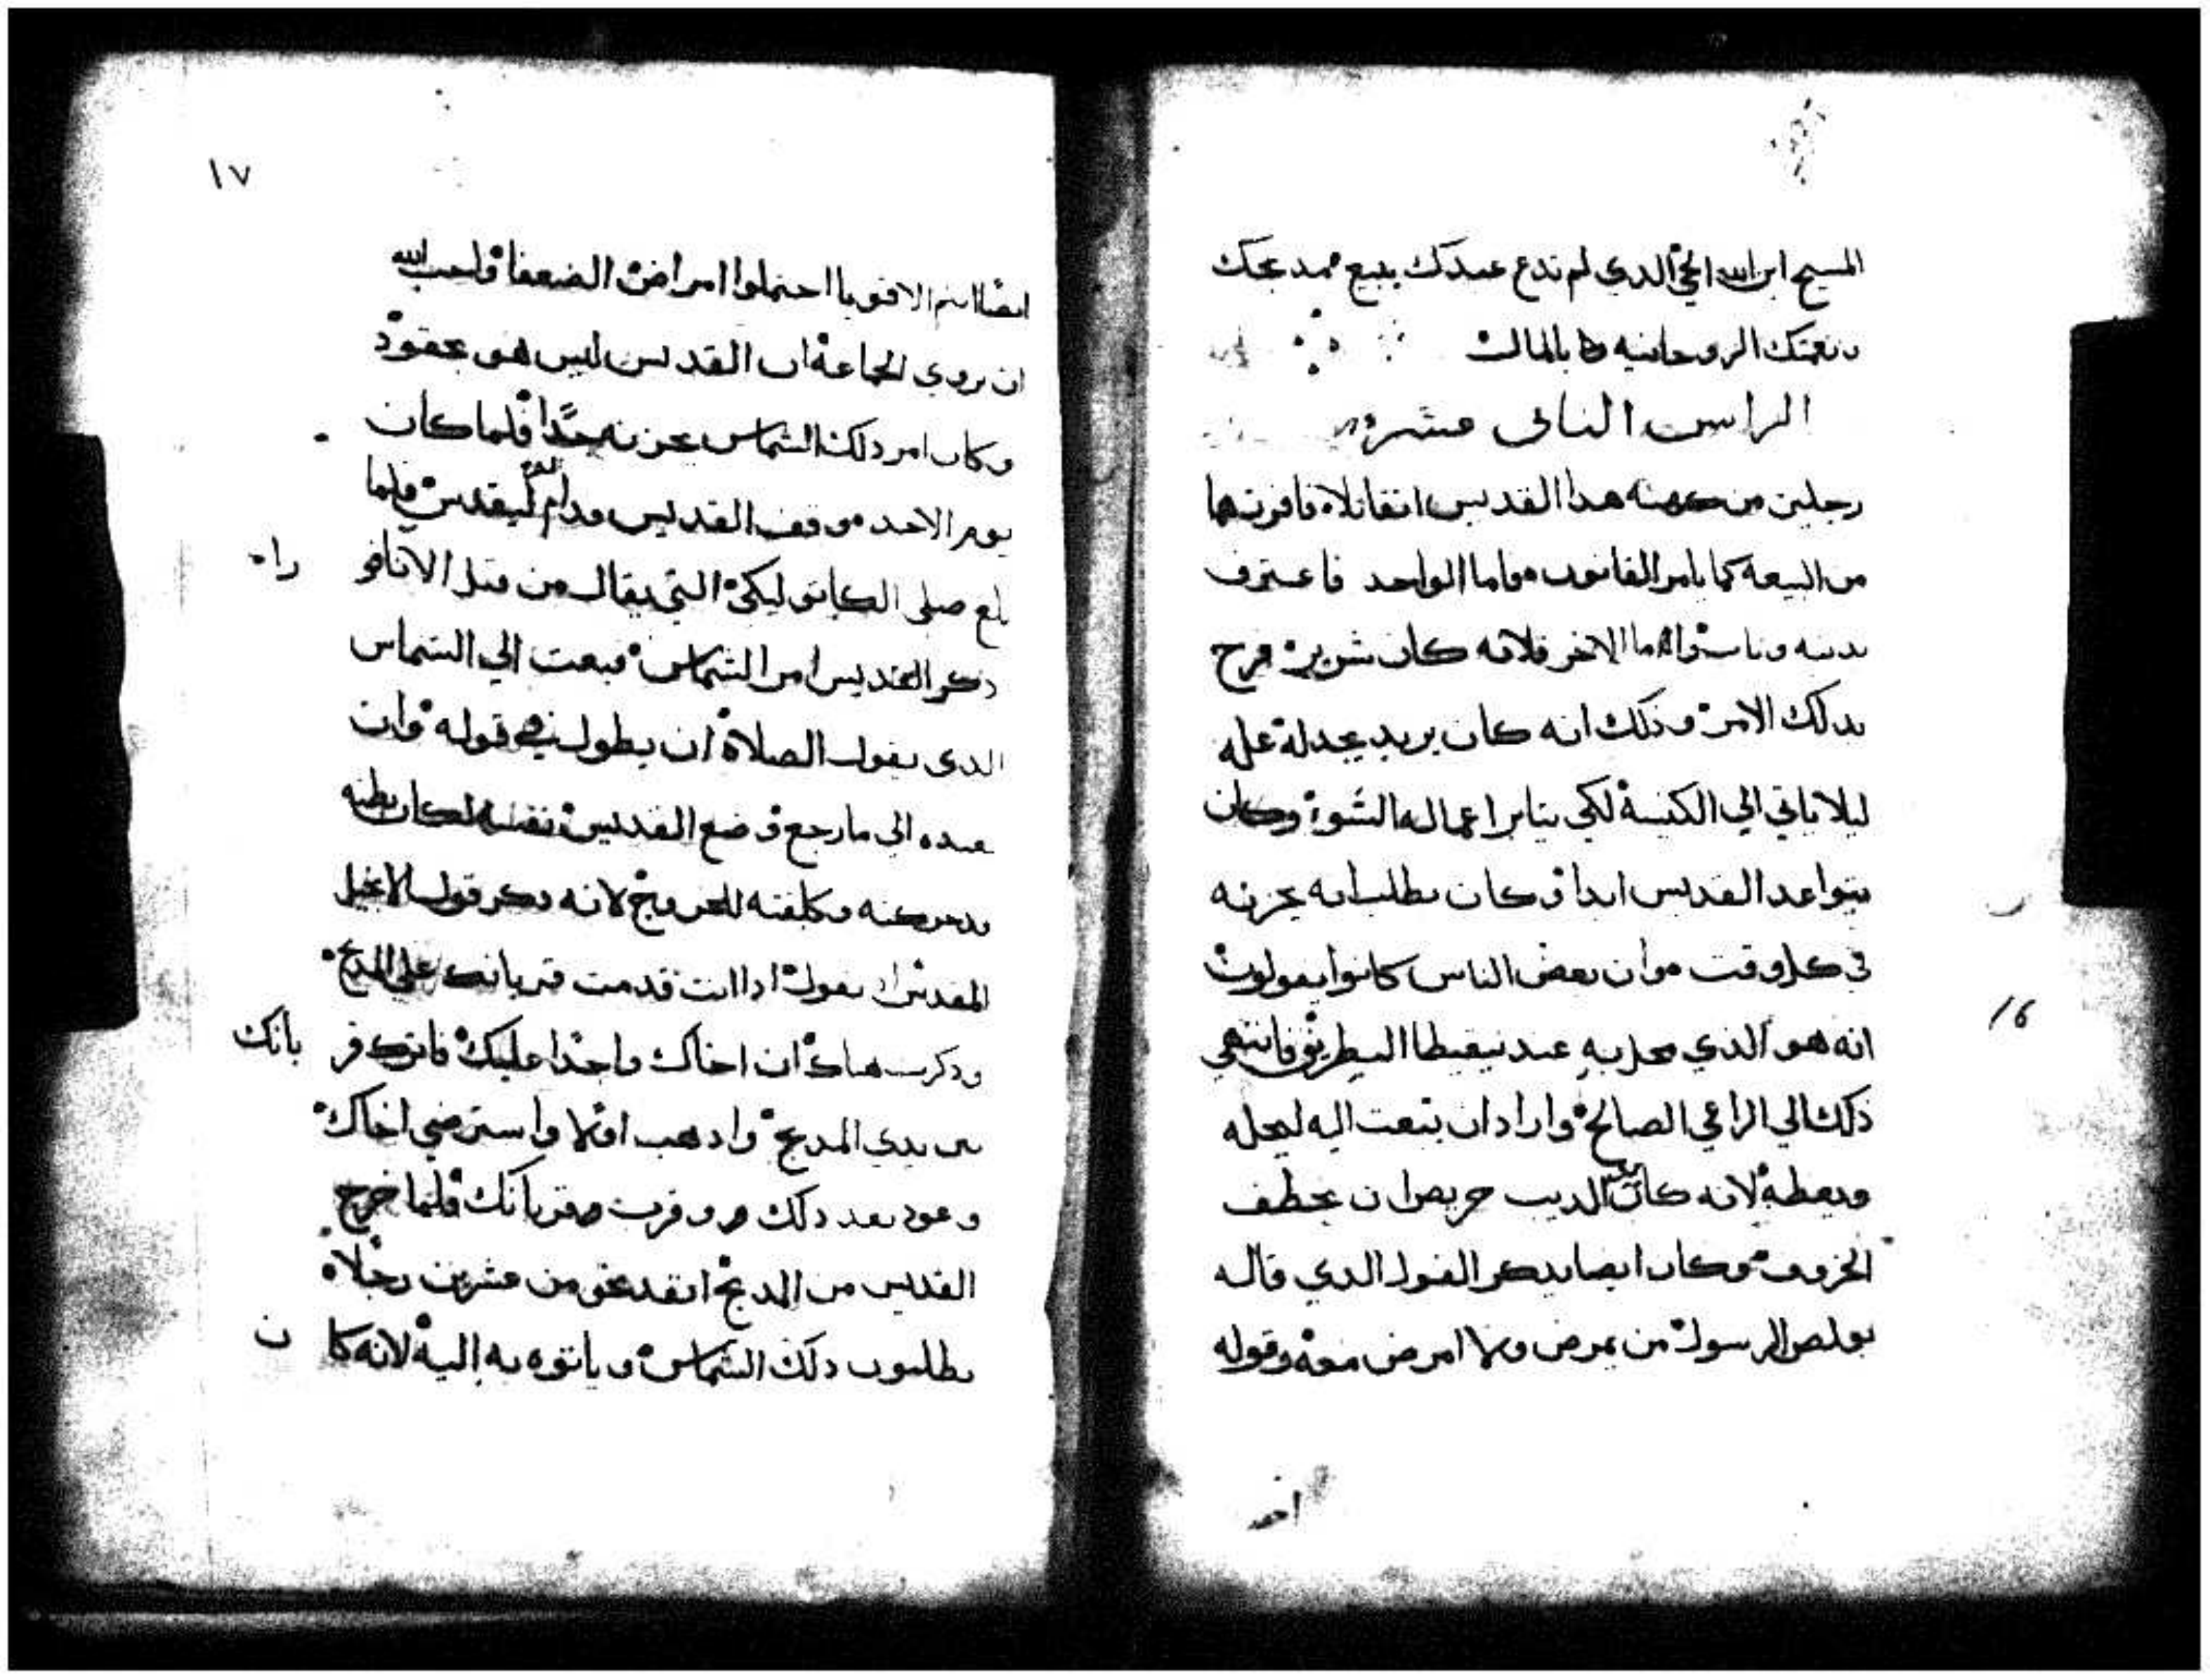 المسيح ابن الله الحي الدي لم تدع عبدك يبيع مجدك
ونعمتك الروحانيه بالمال
الراس التانى عشر
رجلين من كهنه هدا القديس اتقاتلا فافرزهما
من البيعه كما يامر القانون واما الواحد فاعترف
بدنبه وناب واما الاخر فلانه كان شرير فرح
بدلك الامر ودلك انه كان يريد يجد له عله
ليلا ياتي الي الكنيسة لكي يتابر اعماله السوء وكان
يتواعد القديس ابدا وكان يطلب انه يحزنه
في كل وقت وان بعض الناس كانوا يقولون
انه هو الدي محل به عند نيقيطا البطريق فانتهي
دلك الي الراعي الصالح واراد ان يبعت اليه ليحله
ويعظه لانه كان الديب حريص ان يخطف
الخروف وكان ايضا يدكر القول الدي قاله
بولص الرسول من يمرض ولا امرض معه وقوله
احد
16
١٧
ايضا انتم الاقويا احتملوا امراض الضعفا واحب الله
ان يروي الجماعة ان القديس ليس هو بحقود
وكان امر دلك الشماس يحزنه جدا فلما كان
يوم الاحد وقف القديس ليقدس فلما
بلغ صلى الكاتوليكي التي يقال من قبل الانافو راه
دكر القديس امر الشماس فبعت الي الشماس
الدى يقول الصلاة ان يطول في قوله وان
يعيده الي ما رجع وضع القديس بطنه
وتحركه وكلفته للخروج لانه دكر قول الانجيل
المقدس ان يقول ادا انت قدمت قربانك على المدبح
ودكرت هناك ان اخاك واجدا عليك فاترك قر بانك
بين يدي المدبح وادهب اولا واسترضي اخاك
وعود بعد دلك وقرب قربانك فلما خرج
القديس من المدبح انفد نحو من عشرين رجلا
يطلبون دلك الشماس وياتوه به اليه لانه كا ن